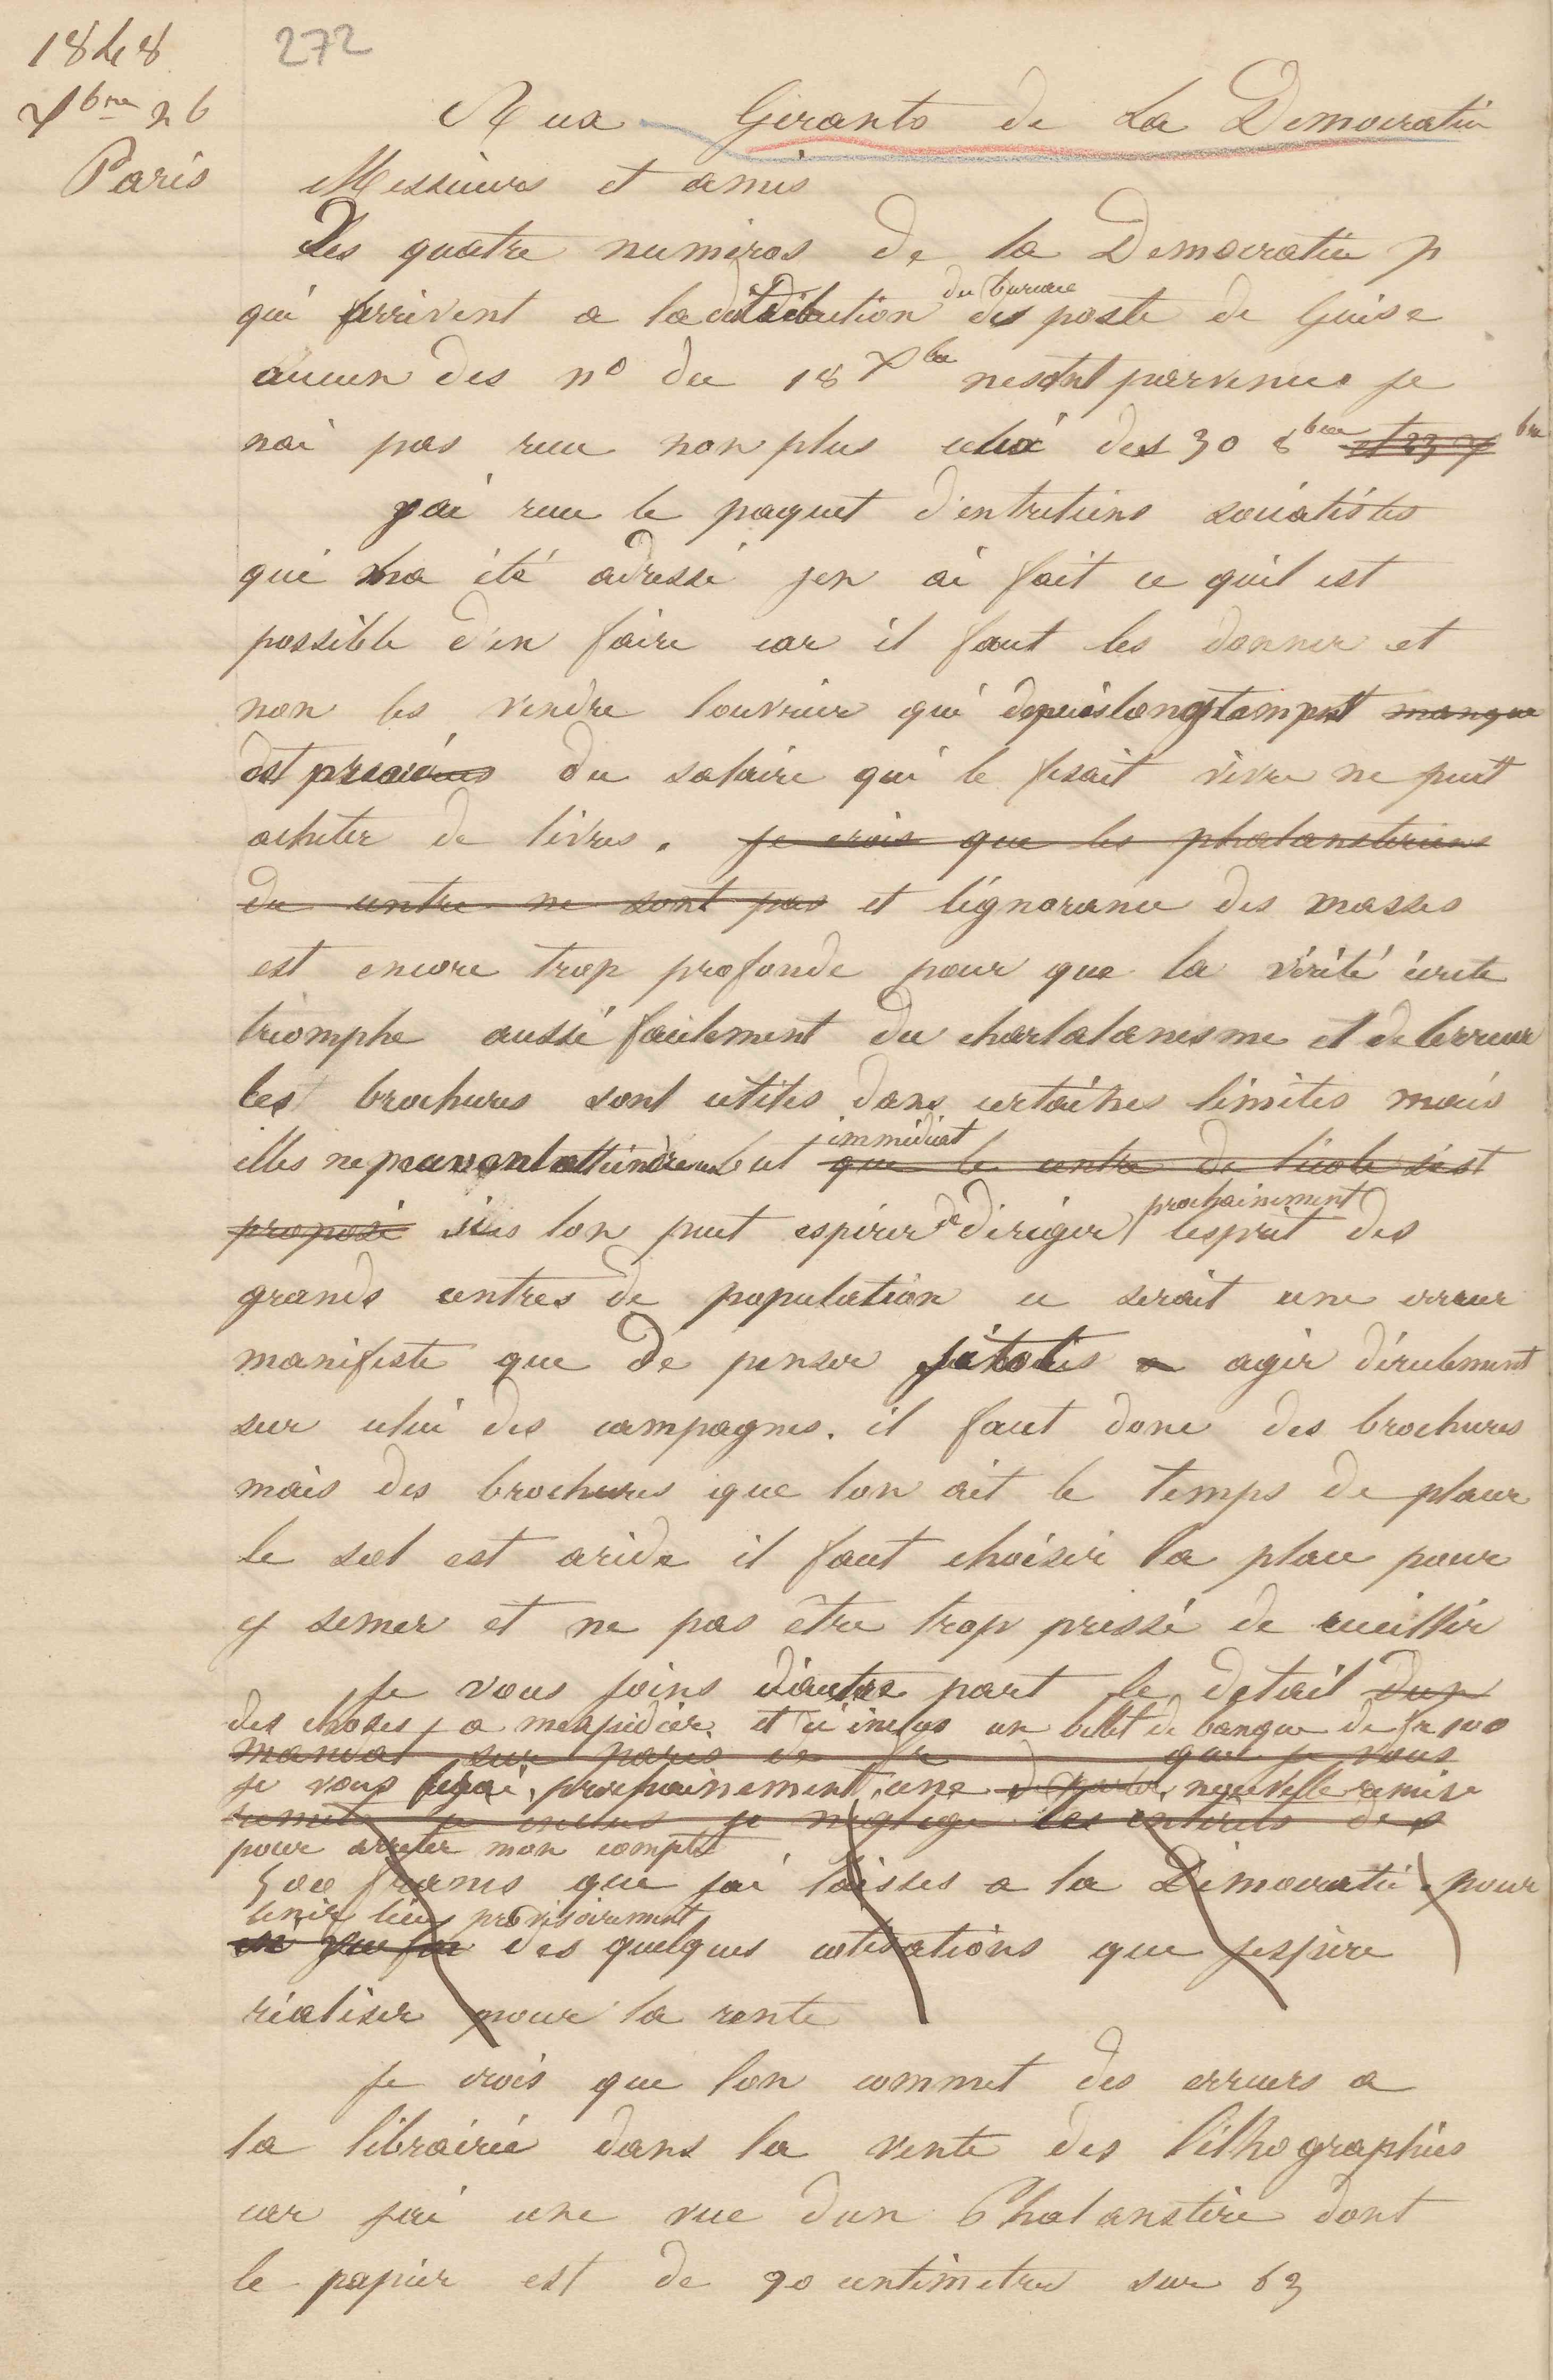 1848
272
Xbre 26
Paris
Aux Gerants de La Democratie
Messieurs et amis
Des quatre numéros de la Democratie p
du bureau
qui arrivent a la distribution des poste de Guise
aucun des n° du 18 Xbre nesont parvenus je
nai pas reçu non plus celui des 30 8bre et 23 7bre
jai reçu le paquet d'entretiens sociatistes
qui ma été adressé jen ai fait ce quil est
possible d'en faire car il faut les donner et
non les vendre louvrier qui depuis longtemps manque
est précaires du salaire qui le fesait vivre ne peut
acheter de livres. je crois que les phalansteriens
du centre ne sont pas et lignorance des masses
est encore trop profonde pour que la vérité écrite
triomphe aussi facilement du charlatanisme et de lerreur
les brochures sont utiles dans certaines limites mais
immédiat
elles ne peuvent atteindre un but que le centre de lécole sest
prochainement
proposé si lon peut espérer de diriger lesprit des
grands centres de population ce serait une erreur
manifeste que de penser sitôt a agir directement
sur celui des campagnes. il faut donc des brochures
mais des brochures que lon ait le temps de placer
le sol est aride il faut choisir la place pour
y semer et ne pas être trop pressé de cueillir
je vous joins d'autre part le detail dun
des choses a mexpédier et ci inclus un billet de banque de fr 100
mandat sur paris de fr que je vous
je vous ferai prochainement une nouvelle remise
remets ci inclus je néglige les intérêts des
pour arreter mon compte
500 francs que jai laissés a la Démocratie pour
tenir lieu provisoirement
des quelques cotisations que jespère
réaliser pour la rente
je crois que lon commet des erreurs a
la librairie dans la vente des lithographies
car jai une vue dun Phalanstère dont
le papier est de 90 centimetres sur 63